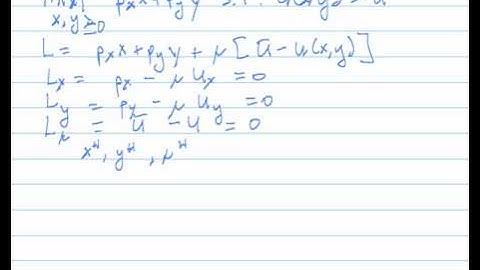 pₓx + p_y y s.t.
x, y ≥ 0
L = pₓx + p_y y + μ [ū - u(x,y)]
Lₓ = pₓ - μ uₓ = 0
L_y = p_y - μ u_y = 0
L_μ = ū - u = 0
x*, y*, μ*